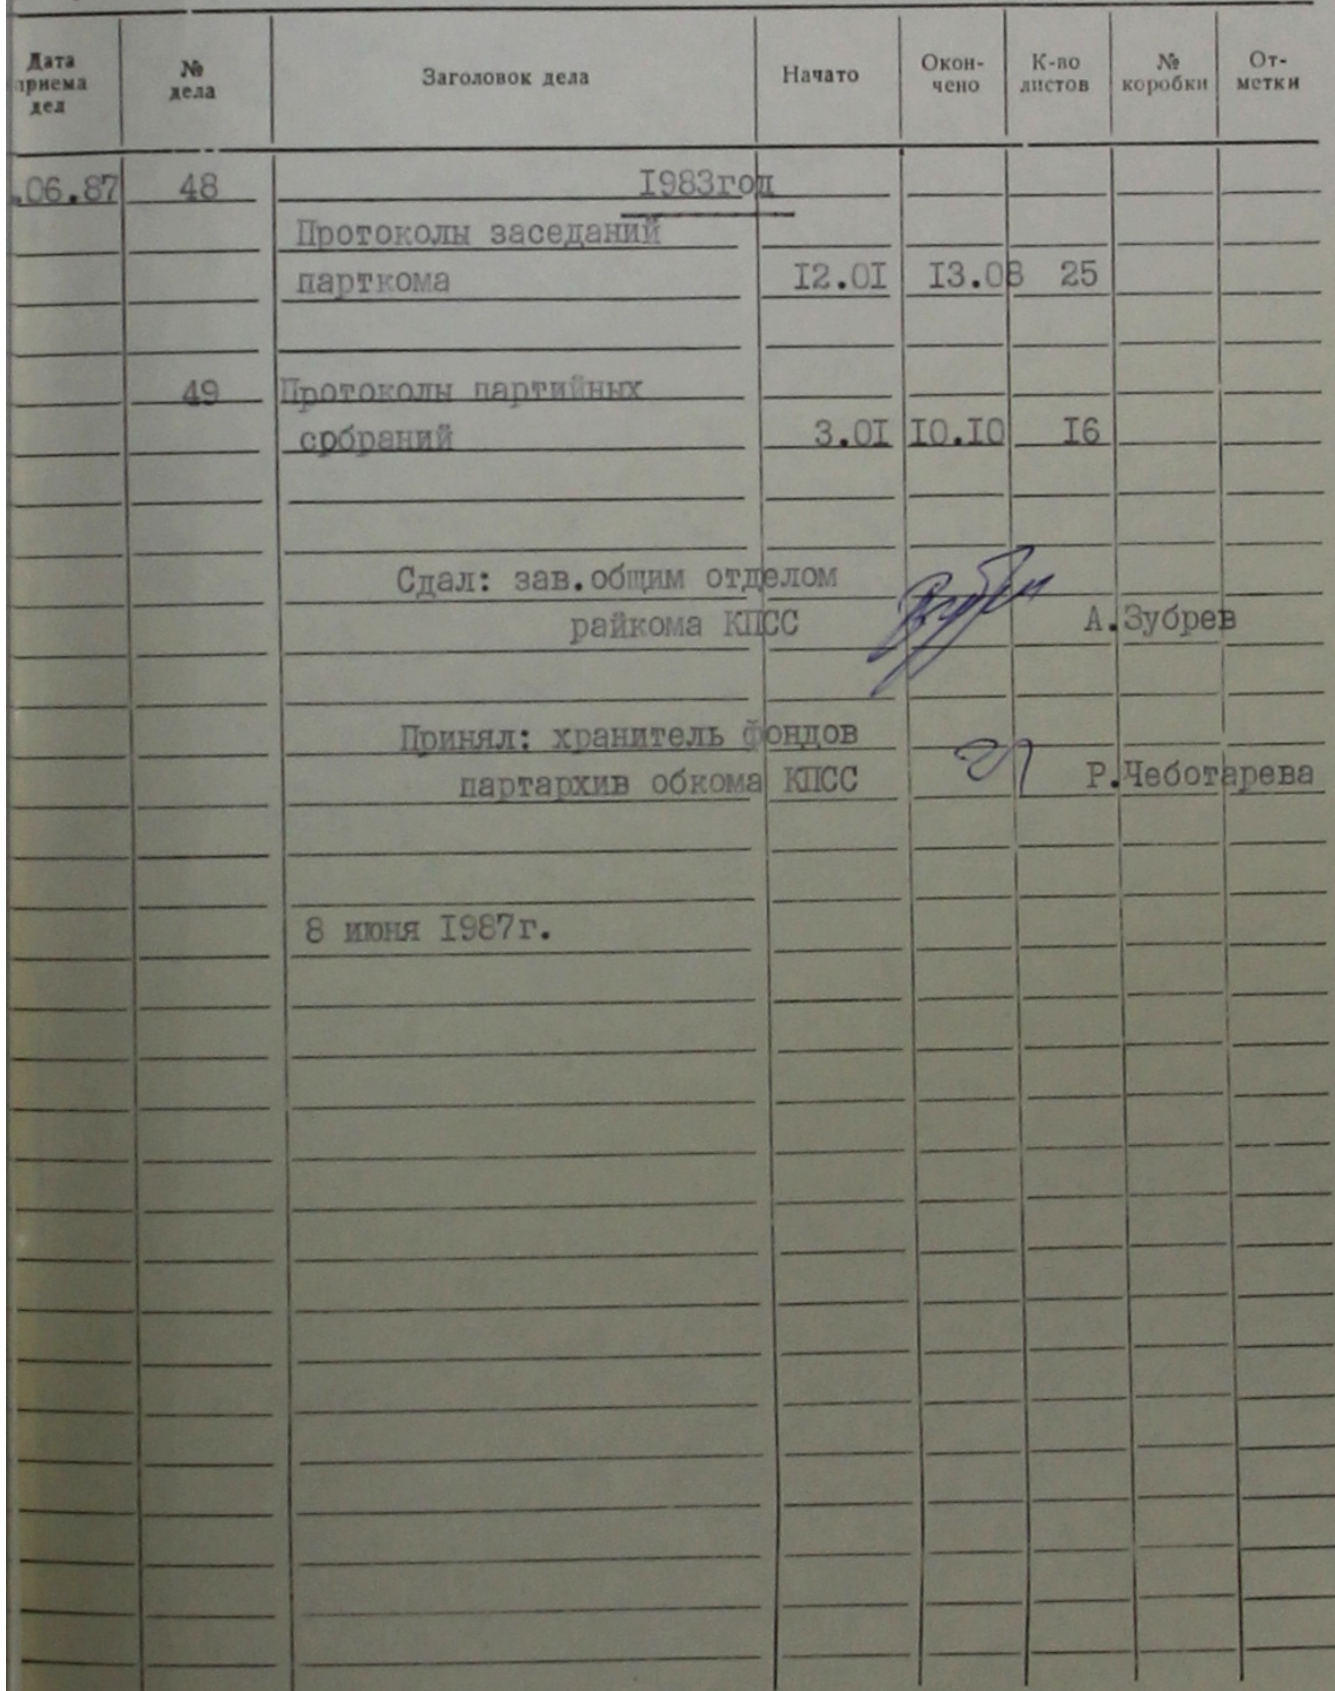 Дата приема дел № дела Заголовок дела Начато Окон- чено К-во листов № коробки От- метки
.06.87 48 1983год
Протоколы заседаний
парткома 12.01 13.08 25
49 Протоколы партийных
србраний 3.01 10.10 16
Сдал: зав.общим отделом
райкома КПСС А.Зубрев
Принял: хранитель фондов
партархив обкома КПСС Р.Чеботарева
8 июня 1987г.